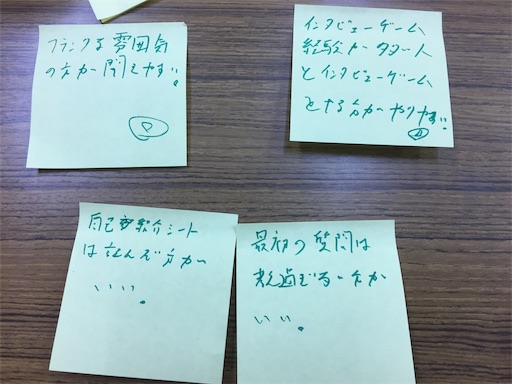 フランクな雰囲気
の方が聞きやすい。
インタビューゲーム
経験が多い人
とインタビューゲーム
をする方がやりやすい
自己紹介シート
は読んだ方が
いい。
最初の質問は
方が
いい。